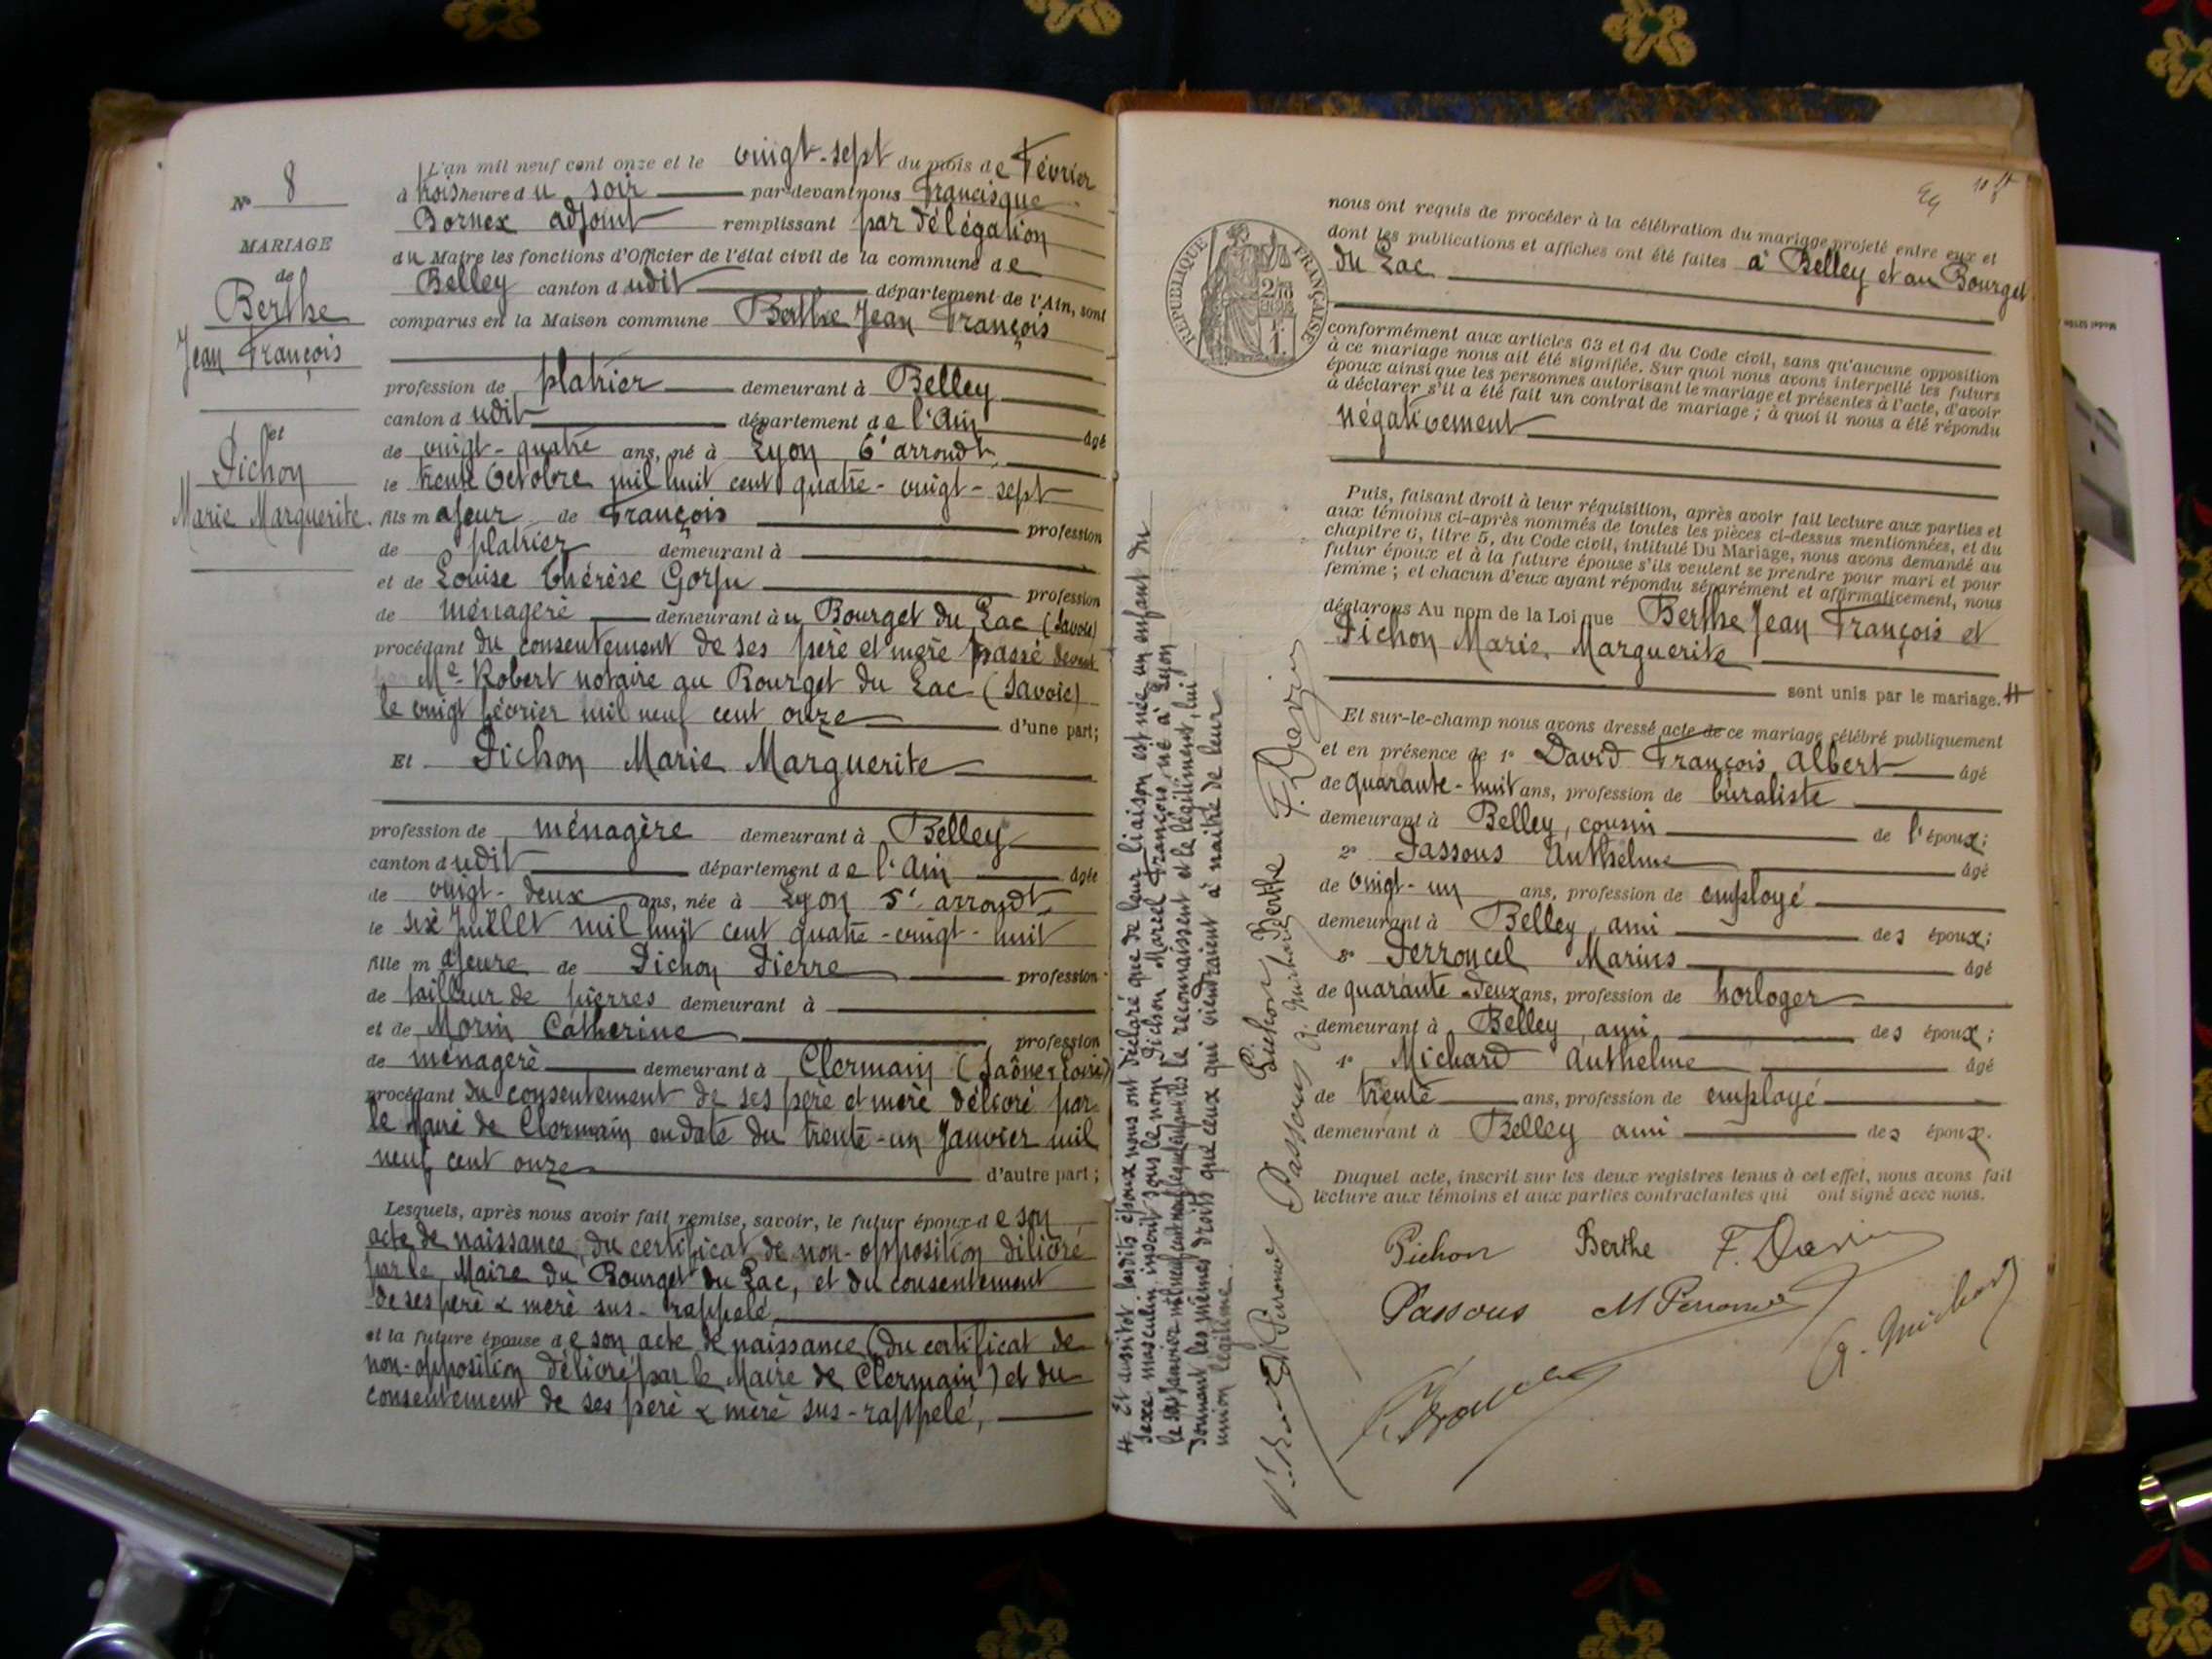 N° 8
MARIAGE
de
Berthe
Jean François
et
Pichon
Marie Marguerite.
L'an mil neuf cent onze et le vingt-sept du mois de Février
à trois heure du soir par-devant nous Francisque
Bornex adjoint remplissant par délégation
du Maire les fonctions d'Officier de l'état civil de la commune de
Belley canton dudit département de l'Ain, sont
comparus en la Maison commune Berthe Jean François
profession de plâtrier demeurant à Belley
canton dudit département de l'Ain âgé
de vingt-quatre ans, né à Lyon 6e arrondt
le trente Octobre mil huit cent quatre-vingt-sept
fils majeur de François profession
de plâtrier demeurant à
et de Louise Thérèse Gorju profession
de ménagère demeurant au Bourget du Lac (Savoie)
procédant du consentement de ses père et mère passé devant
Me Robert notaire au Bourget du Lac (Savoie)
le vingt février mil neuf cent onze d'une part;
Et Pichon Marie Marguerite
profession de ménagère demeurant à Belley
canton dudit département de l'Ain âgée
de vingt-deux ans, née à Lyon 5e arrondt
le six Juillet mil huit cent quatre-vingt-huit
fille majeure de Pichon Pierre profession
de tailleur de pierres demeurant à
et de Morin Catherine profession
de ménagère demeurant à Clermain (Saône & Loire)
procédant du consentement de ses père et mère délivré par
le Maire de Clermain en date du trente-un Janvier mil
neuf cent onze d'autre part;
Lesquels, après nous avoir fait remise, savoir, le futur époux de son
acte de naissance, du certificat de non-opposition délivré
par le Maire du Bourget du Lac, et du consentement
de ses père & mère sus-rappelé,
et la future épouse de son acte de naissance (du certificat de
non-opposition délivré par le Maire de Clermain) et du
consentement de ses père & mère sus-rappelé,
# Et aussitôt lesdits époux nous ont déclaré que de leur liaison est née un enfant du
sexe masculin inscrit sous le nom Pichon Marcel François, né à Lyon
le Janvier mil neuf cent lequel enfant ils le reconnaissent et le légitiment, lui
donnant les mêmes droits que ceux qui viendraient à naître de leur
union légitime.
Pichon Berthe
Passous A. Michard
M Perroncel
RÉPUBLIQUE FRANÇAISE
nous ont requis de procéder à la célébration du mariage projeté entre eux et
dont les publications et affiches ont été faites à Belley et au Bourget
du Lac
conformément aux articles 63 et 64 du Code civil, sans qu'aucune opposition
à ce mariage nous ait été signifiée. Sur quoi nous avons interpellé les futurs
époux ainsi que les personnes autorisant le mariage et présentes à l'acte, d'avoir
à déclarer s'il a été fait un contrat de mariage; à quoi il nous a été répondu
négativement
Puis, faisant droit à leur réquisition, après avoir fait lecture aux parties et
aux témoins ci-après nommés de toutes les pièces ci-dessus mentionnées, et du
chapitre 6, titre 5, du Code civil, intitulé Du Mariage, nous avons demandé au
futur époux et à la future épouse s'ils veulent se prendre pour mari et pour
femme; et chacun d'eux ayant répondu séparément et affirmativement, nous
déclarons Au nom de la Loi que Berthe Jean François et
Pichon Marie Marguerite
sont unis par le mariage. #
Et sur-le-champ nous avons dressé acte de ce mariage célébré publiquement
et en présence de 1° David François Albert âgé
de quarante-huit ans, profession de buraliste
demeurant à Belley, cousin de l'époux;
2° Passous Anthelme âgé
de vingt-un ans, profession de employé
demeurant à Belley, ami des époux;
3° Perroncel Marius âgé
de quarante-deux ans, profession de horloger
demeurant à Belley, ami des époux;
4° Michard Anthelme âgé
de trente ans, profession de employé
demeurant à Belley ami des époux.
Duquel acte, inscrit sur les deux registres tenus à cet effet, nous avons fait
lecture aux témoins et aux parties contractantes qui ont signé avec nous.
Pichon Berthe
Passous M Perroncel
A. Michard